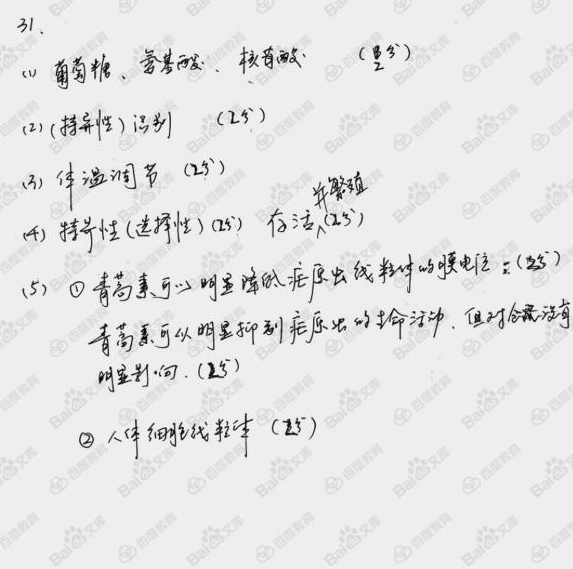 31.
(1) 葡萄糖、氨基酸、核苷酸 (2分)
(2) (特异性) 识别 (2分)
(3) 体温调节 (2分)
(4) 特异性(选择性) (2分) 存活并繁殖(2分)
(5) ① 青蒿素可以明显降低疟原虫线粒体的膜电位;
青蒿素可以明显抑制疟原虫的生命活动,但对 没有
明显影响. (2分)
② 人体细胞线粒体
Bai度文库
百度教育